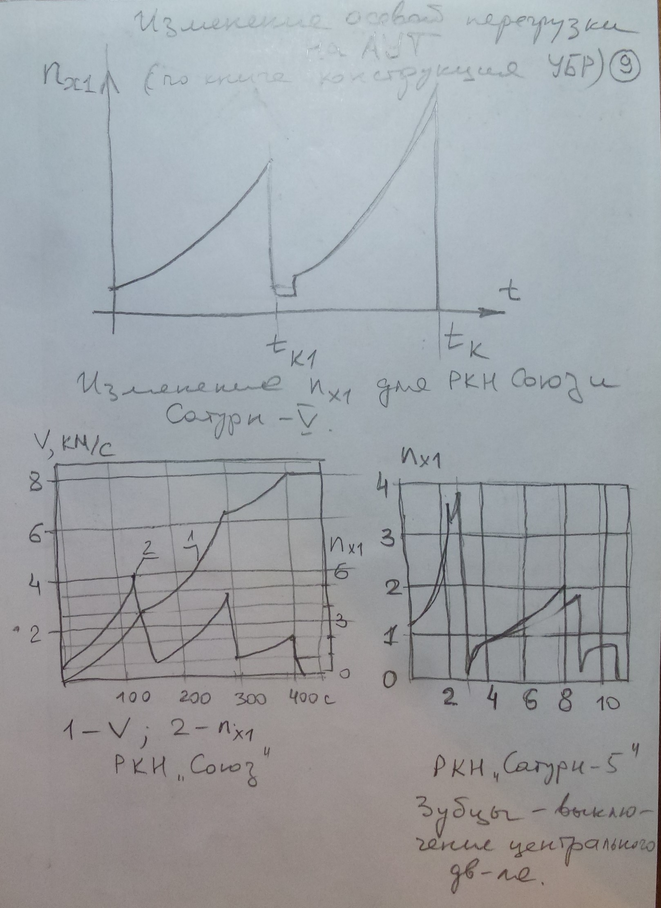 Изменение осовой перегрузки
на АУТ
nx1 (по книге конструкция УБР) 9
t
tк1 tк
Изменение nx1 для РКН Союз и
Сатурн-V.
V, км/с
8
6
4
2
2 1
nx1
6
3
0
100 200 300 400 с
1-V; 2-nx1
РКН „Союз"
nx1
4
3
2
1
0
2 4 6 8 10
РКН „Сатурн-5"
Зубцы - выклю-
чение центрального
дв-ле.